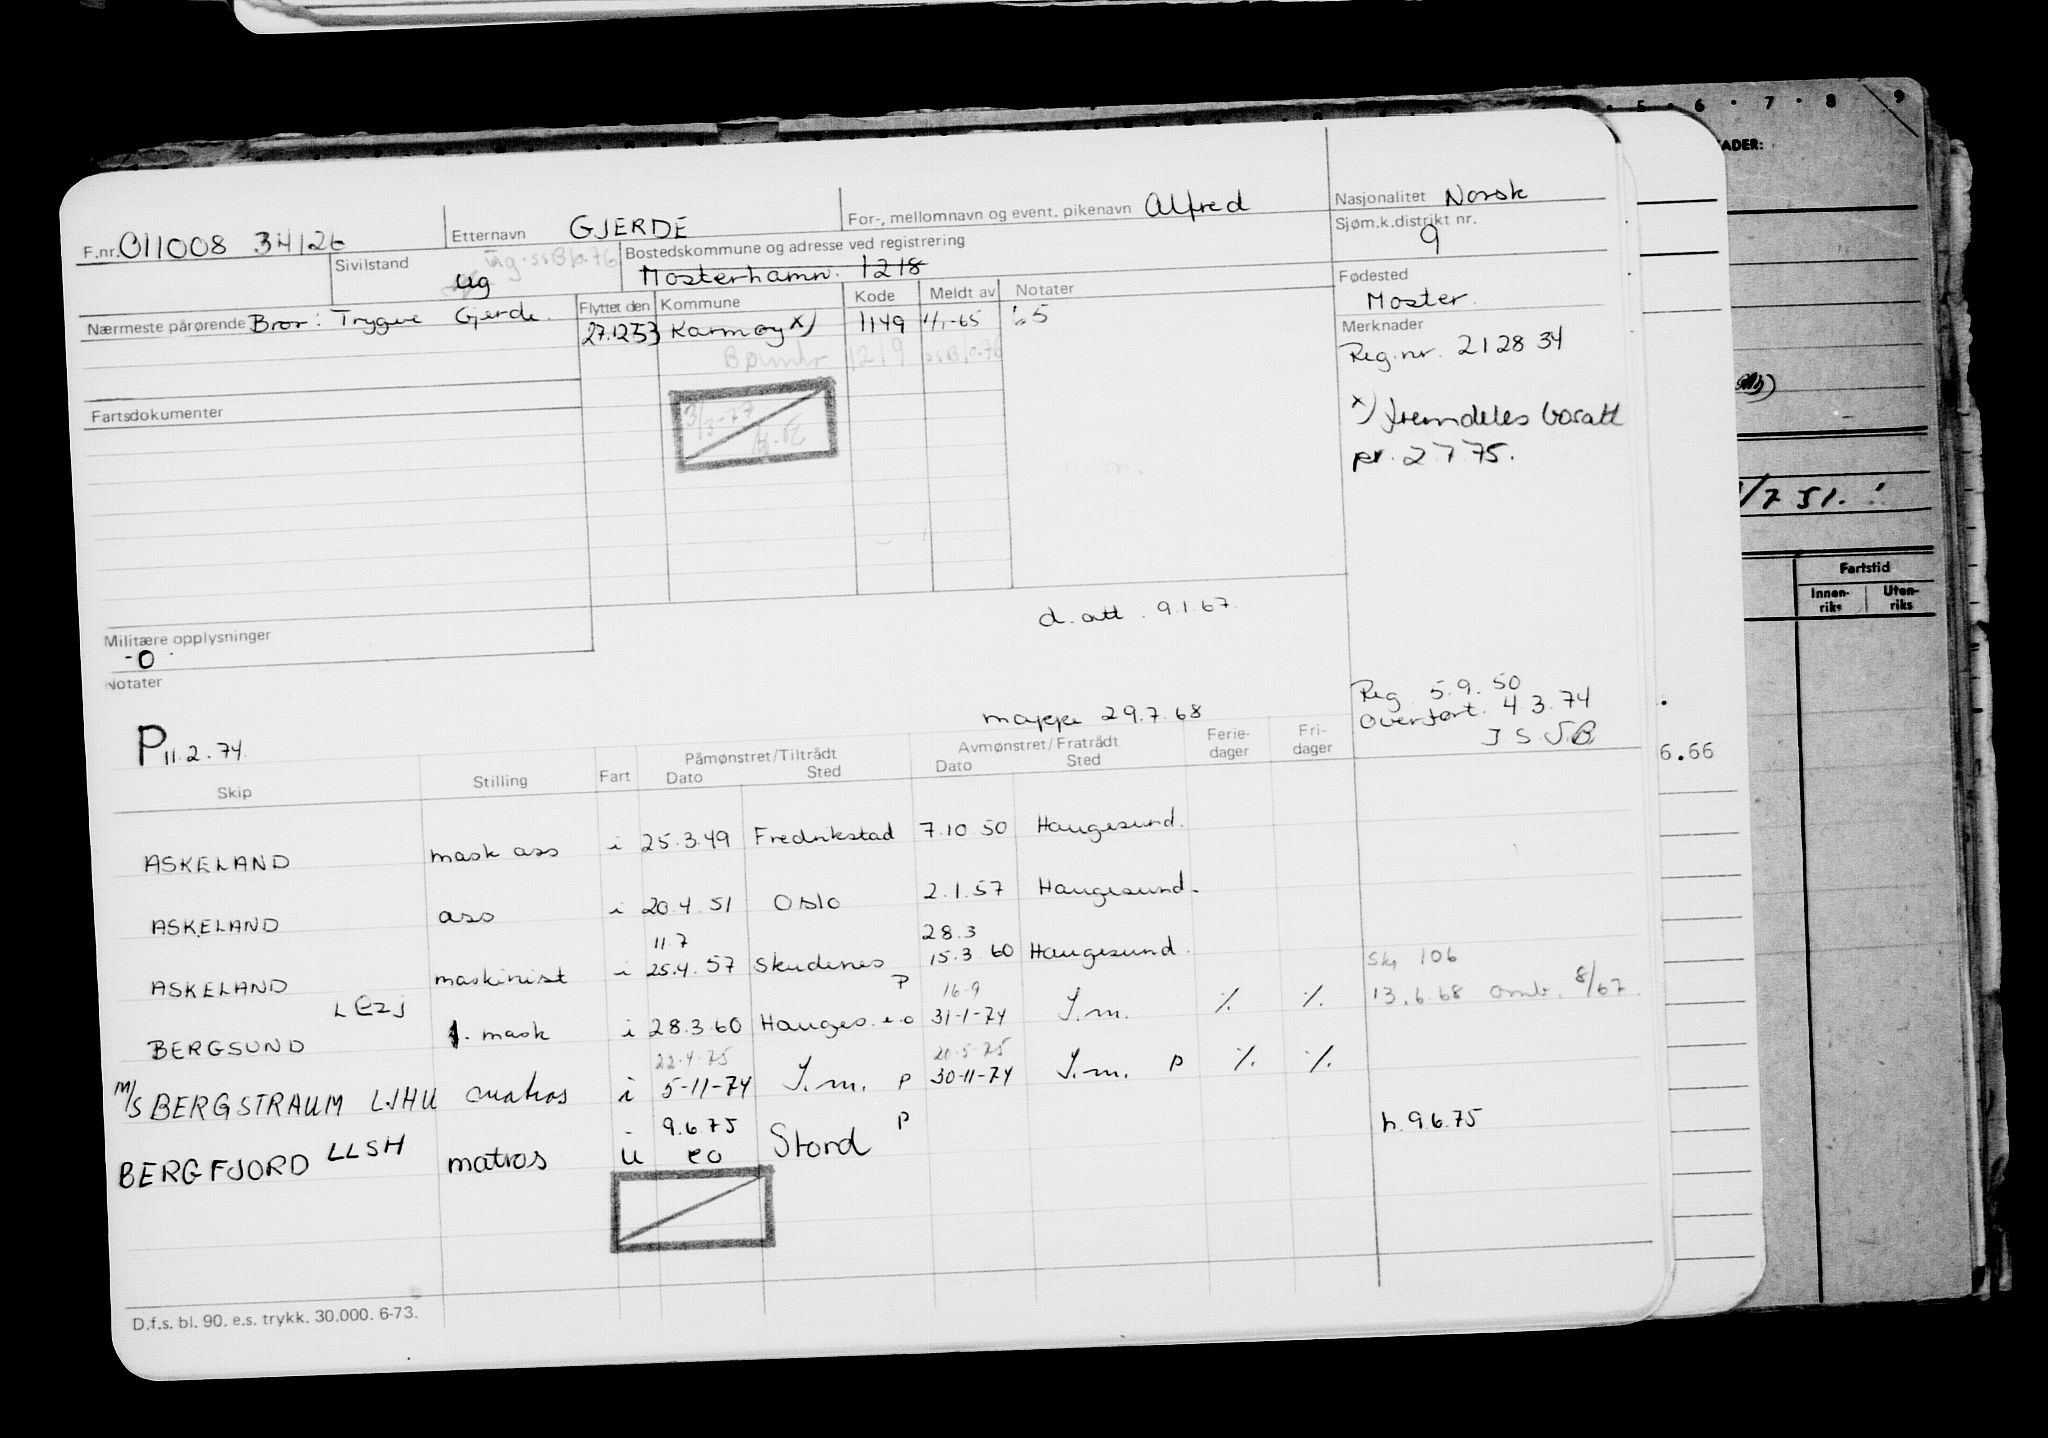 F.nr. 011008 34126 Etternavn GJERDE For-, mellomnavn og event. pikenavn Alfred Nasjonalitet Norsk
Sjøm.k.distrikt nr. 9
Sivilstand ug Bostedskommune og adresse ved registrering
Mosterhamn. 1218
Fødested
Moster.
Nærmeste pårørende Bror: Trygve Gjerde. Flyttet den Kommune Kode Meldt av Notater
27.12 53 Karmøy x) 1149 1/1-65 65
Bømlo 1219 ssB/0.76
Merknader
Reg.nr. 2128 34
x) fremdeles bosatt
pr. 2.7.75.
Fartsdokumenter
3/3-77
Militære opplysninger
-0-
Notater
d. att. 9.1.67.
P 11.2.74.
mappe 29.7.68
Reg. 5.9.50
Overført. 4.3.74
J.S.
Skip Stilling Fart Påmønstret/Tiltrådt Dato Sted Avmønstret/Fratrådt Dato Sted Ferie-dager Fri-dager
ASKELAND mask ass i 25.3.49 Fredrikstad 7.10 50 Haugesund.
ASKELAND ass i 20.4.51 Oslo 2.1.57 Haugesund.
11.7 28.3
ASKELAND maskinist i 25.4.57 Skudenes 15.3 60 Haugesund.
Sk 106
P 16-9
BERGSUND LEZJ 1. mask i 28.3.60 Hauges. e.o 31-1-74 S.m. % % 13.6.68 omb. 8/67.
22.4.75 20.5-75
M/S BERGSTRAUM LJHU matros i 5-11-74 S.m. P 30-11-74 S.m. P % %
9.6.75 P
BERGFJORD LLSH matros u eo Stord h.9.6.75
D.f.s. bl. 90. e.s. trykk. 30.000. 6-73.
6.66
5 6 7 8 9
ADER:
/7 51.
Fartstid
Innen-riks Uten-riks